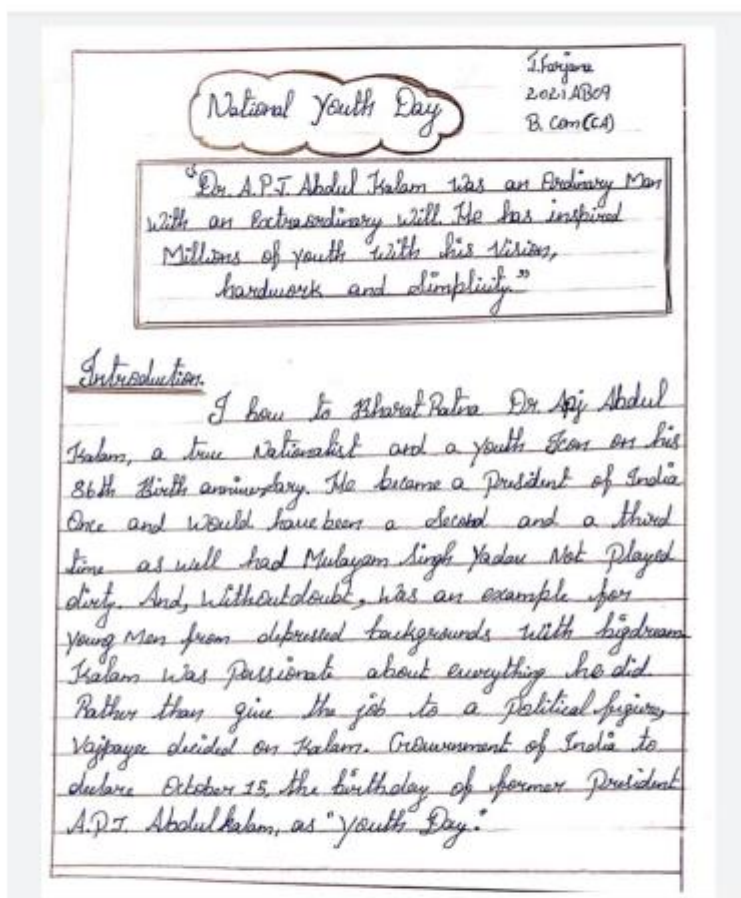 J. Farjana
2021AB09
B. Com (CA)
National Youth Day
"Dr. A.P.J Abdul Kalam was an Ordinary Man
With an Extraordinary Will. He has inspired
Millions of youth with his Vision,
hardwork and Simplicity."
Introduction.
I bow to Bharat Ratna Dr. Apj Abdul
Kalam, a true Nationalist and a youth Icon on his
86th Birth anniversary. He became a President of India
Once and would have been a Second and a third
time as well had Mulayam Singh Yadav Not Played
dirty. And, Without doubt, was an example for
young Men from depressed backgrounds with big dream
Kalam was Passionate about everything he did.
Rather than give the job to a Political figure,
Vajpayee decided on Kalam. Government of India to
declare October 15, the birthday of former President
A.P.J. Abdul kalam, as "Youth Day."